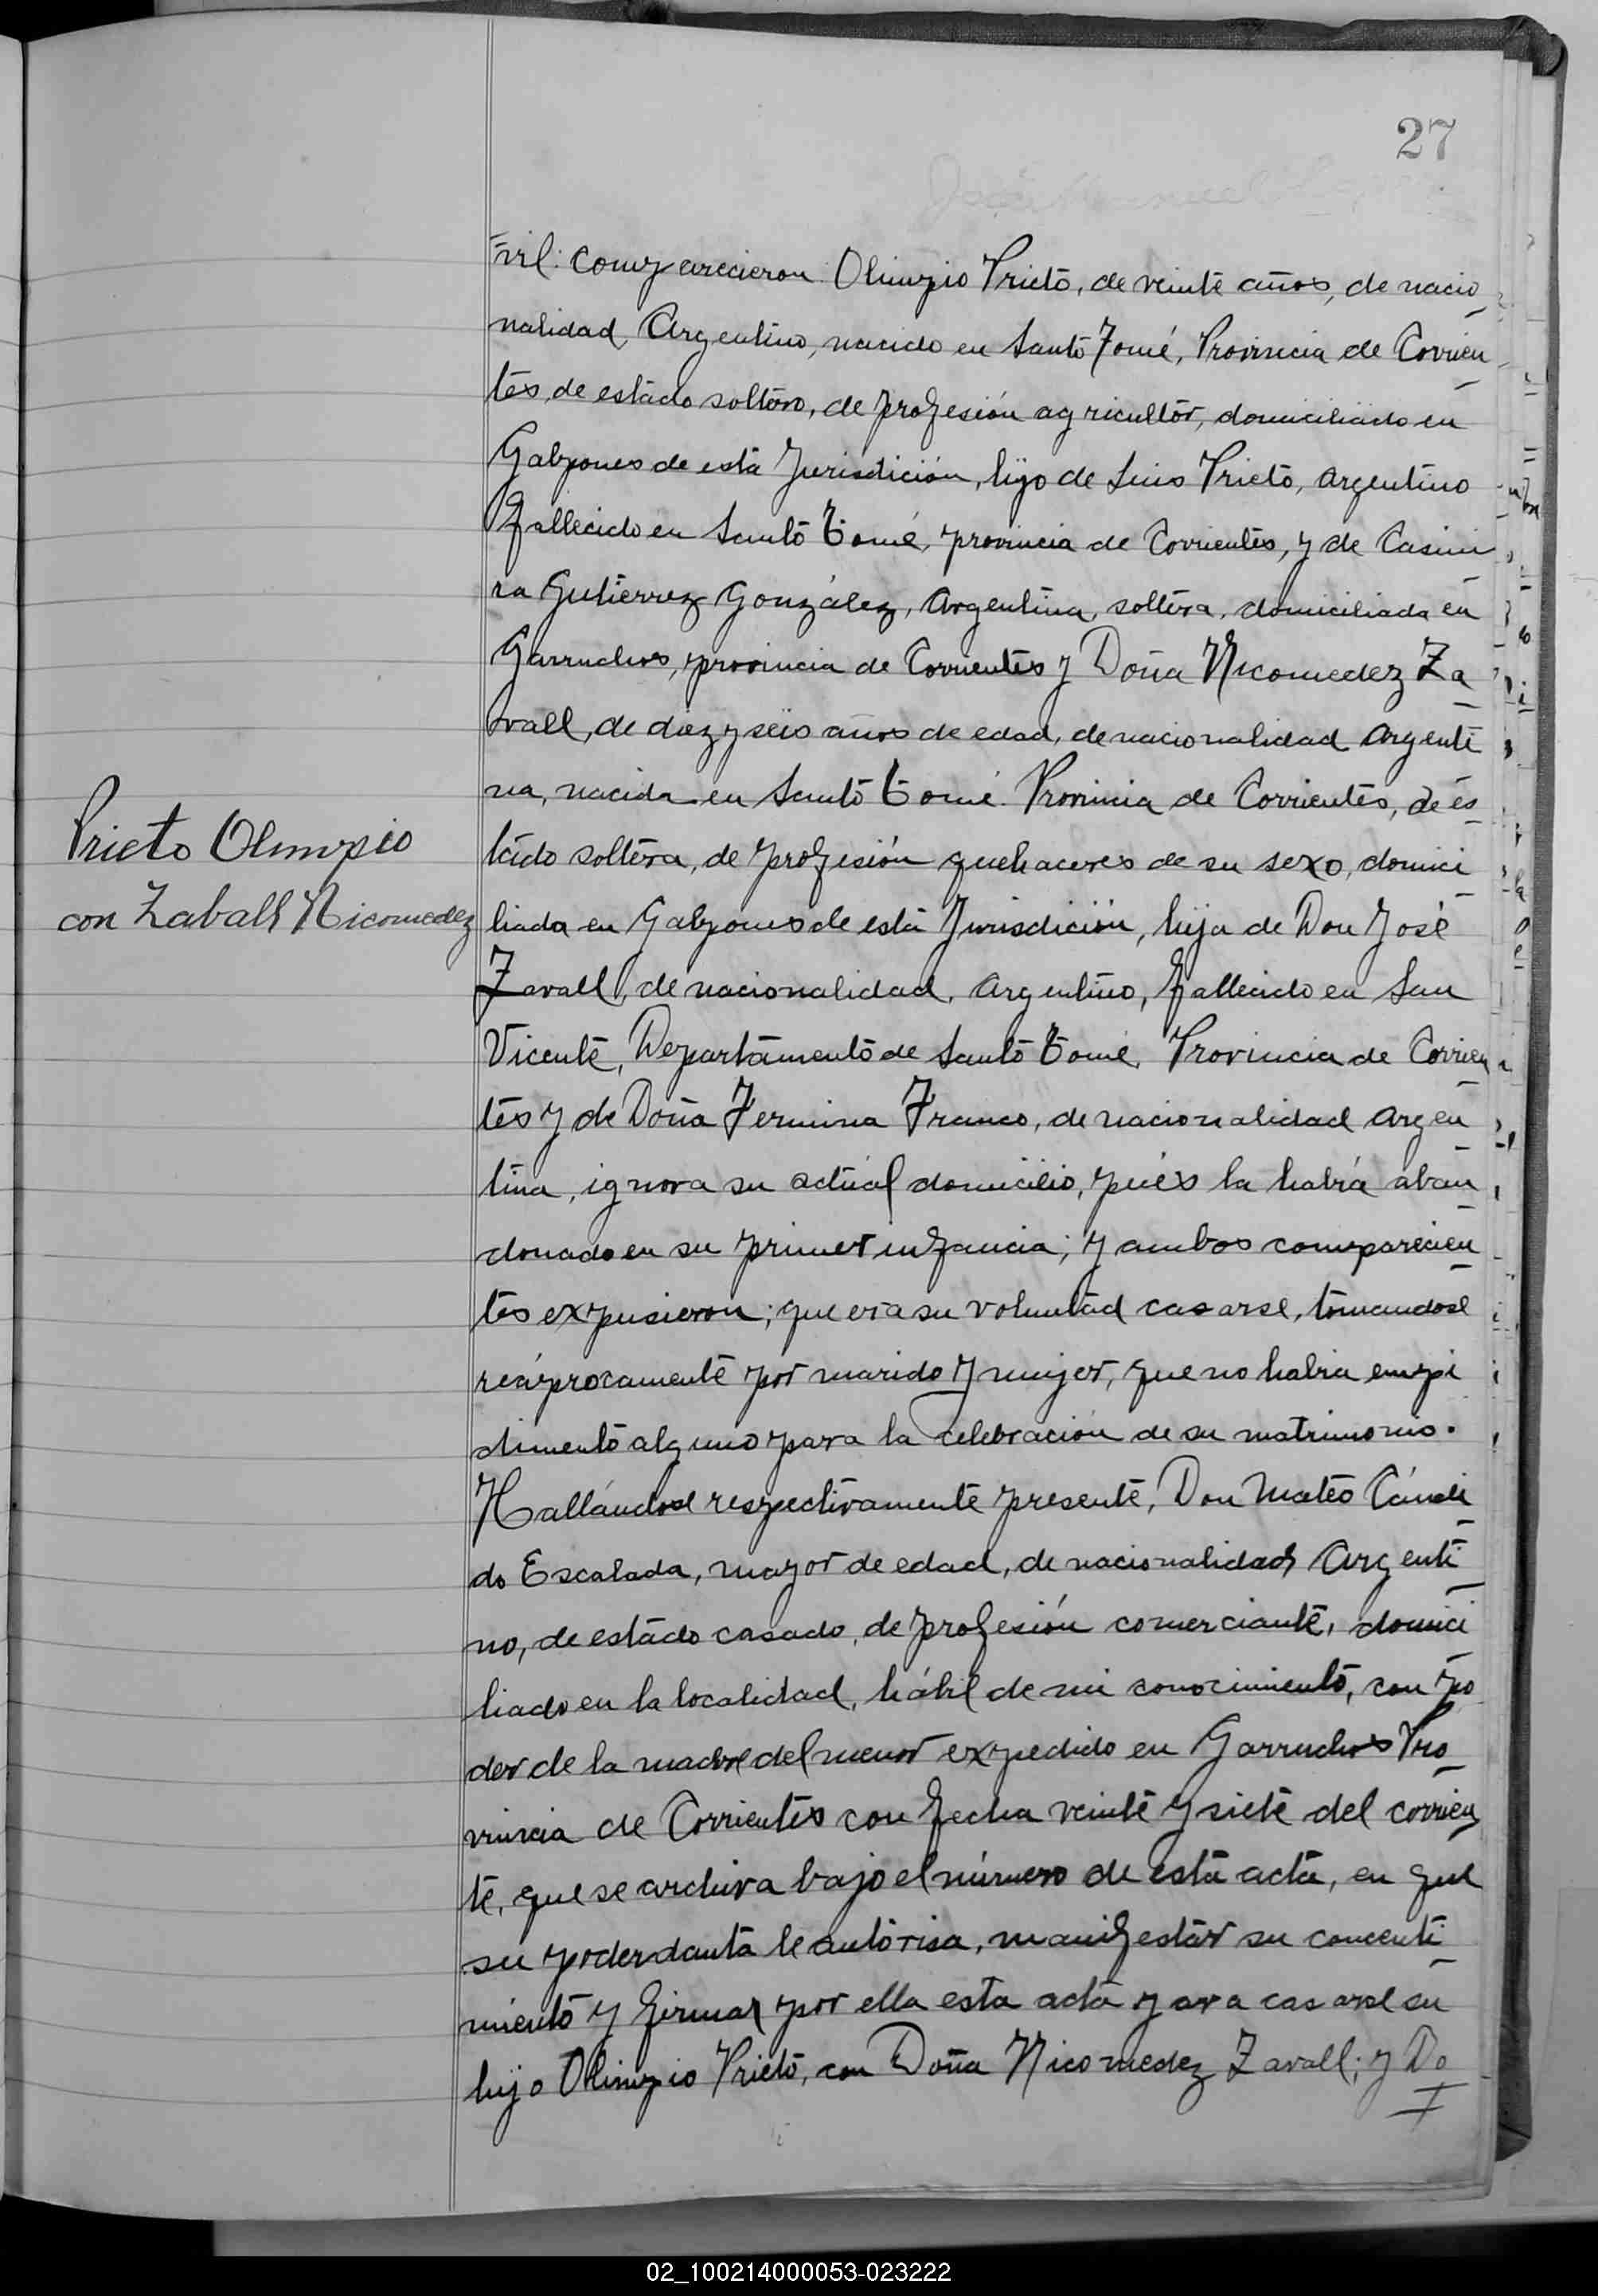 27
vil: Comparecieron: Olimpio Prieto, de veinte años, de nacio
nalidad, Argentino, nacido en Santo Tomé, Provincia de Corrien
tes, de estado soltero, de profesión agricultor, domiciliado en
Galpones de esta Jurisdición, hijo de Luis Prieto, Argentino
fallecido en Santo Tomé, provincia de Corrientes, y de Casimi
ra Gutierrez González, Argentina, soltera, domiciliada en
Garruchos, provincia de Corrientes y Doña Nicomedez Za
vall, de diez y seis años de edad, de nacionalidad Argenti
na, nacida en Santo Tomé Provincia de Corrientes, de es
tado soltera, de profesión quehaceres de su sexo, domici
Prieto Olimpio
con Zaball Nicomedez
liada en Galpones de esta Jurisdición, hija de Don José
Zavall, de nacionalidad, Argentino, fallecido en San
Vicente, Departamento de Santo Tomé, Provincia de Corrien
tes y de Doña Fermina Franco, de nacionalidad Argen
tina, ignora su actual domicilio, pués la habría aban
donado en su primer infancia; y ambos comparecien
tes expusieron; que era su voluntad casarse, tomandose
recíprocamente por marido y mujer, que no habia empi
dimento alguno para la celebración de su matrimonio.
Hallándose respectivamente presente, Don Mateo Cándi
do Escalada, mayor de edad, de nacionalidad Argenti
no, de estado casado, de profesión comerciante, domici
liado en la localidad, hábil de mi conocimiento, con po
der de la madre del menor expedido en Garruchos Pro
vincia de Corrientes con fecha veinte y siete del corrien
te, que se archiva bajo el número de esta acta, en que
su poderdanta le autorisa, manifestar su concenti
miento y firmar por ella esta acta para casarse su
hijo Olimpio Prieto, con Doña Nicomedez Zavall; y Do
02_100214000053-023222